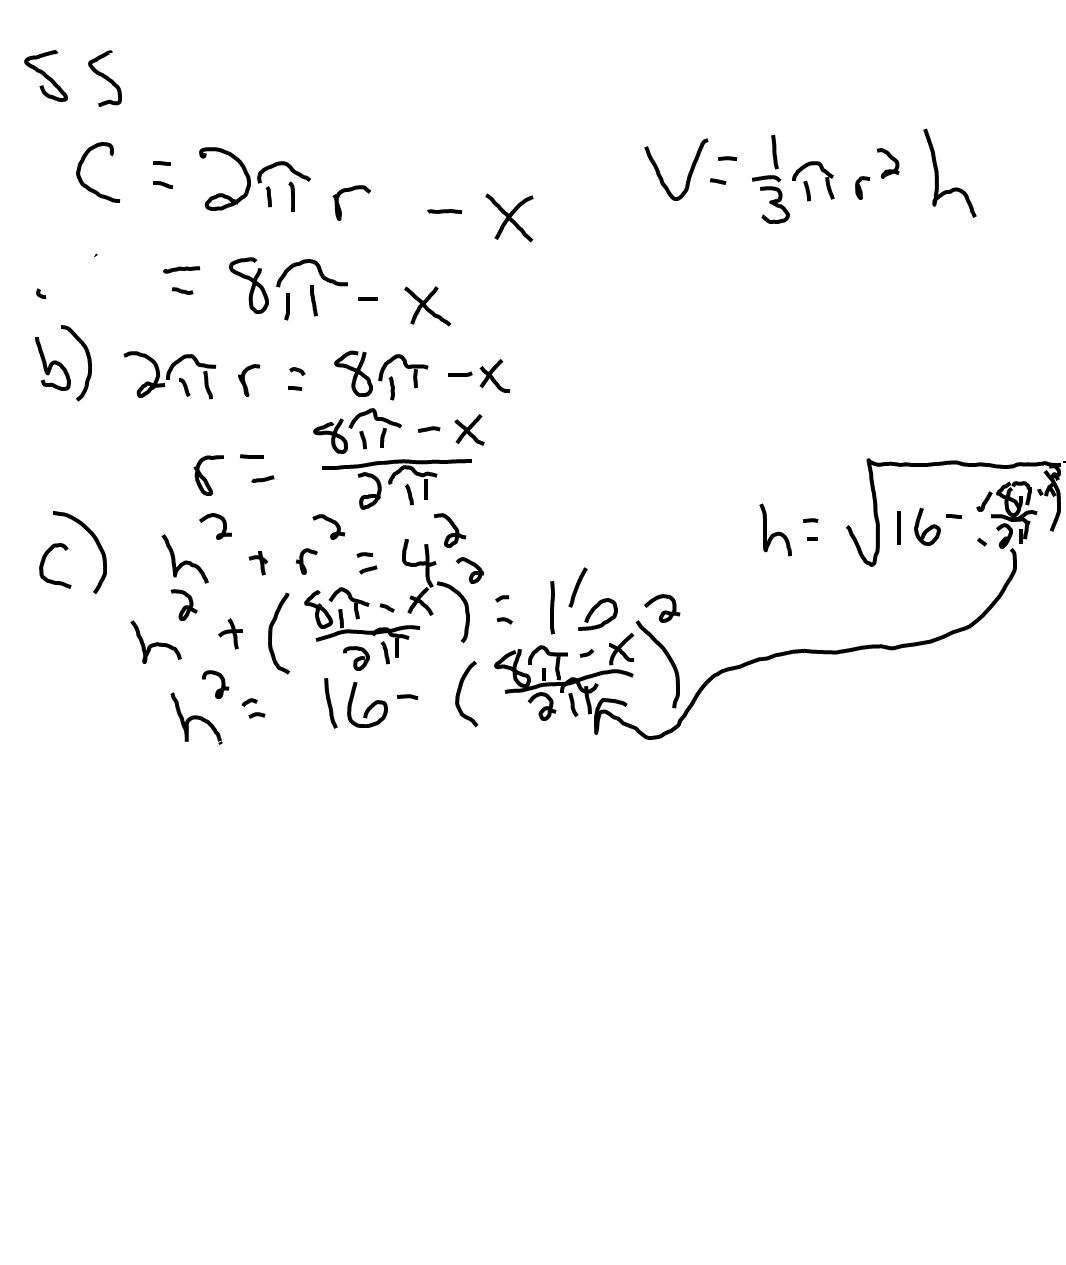 55
C = 2π r - x
V = 1/3 π r² h
= 8π - x
b) 2π r = 8π - x
r = (8π - x)/(2π)
c) h² + r² = 4²
h² + ((8π - x)/(2π))² = 16
h² = 16 - ((8π - x)/(2π))²
h = √(16 - ((8π - x)/(2π))²)